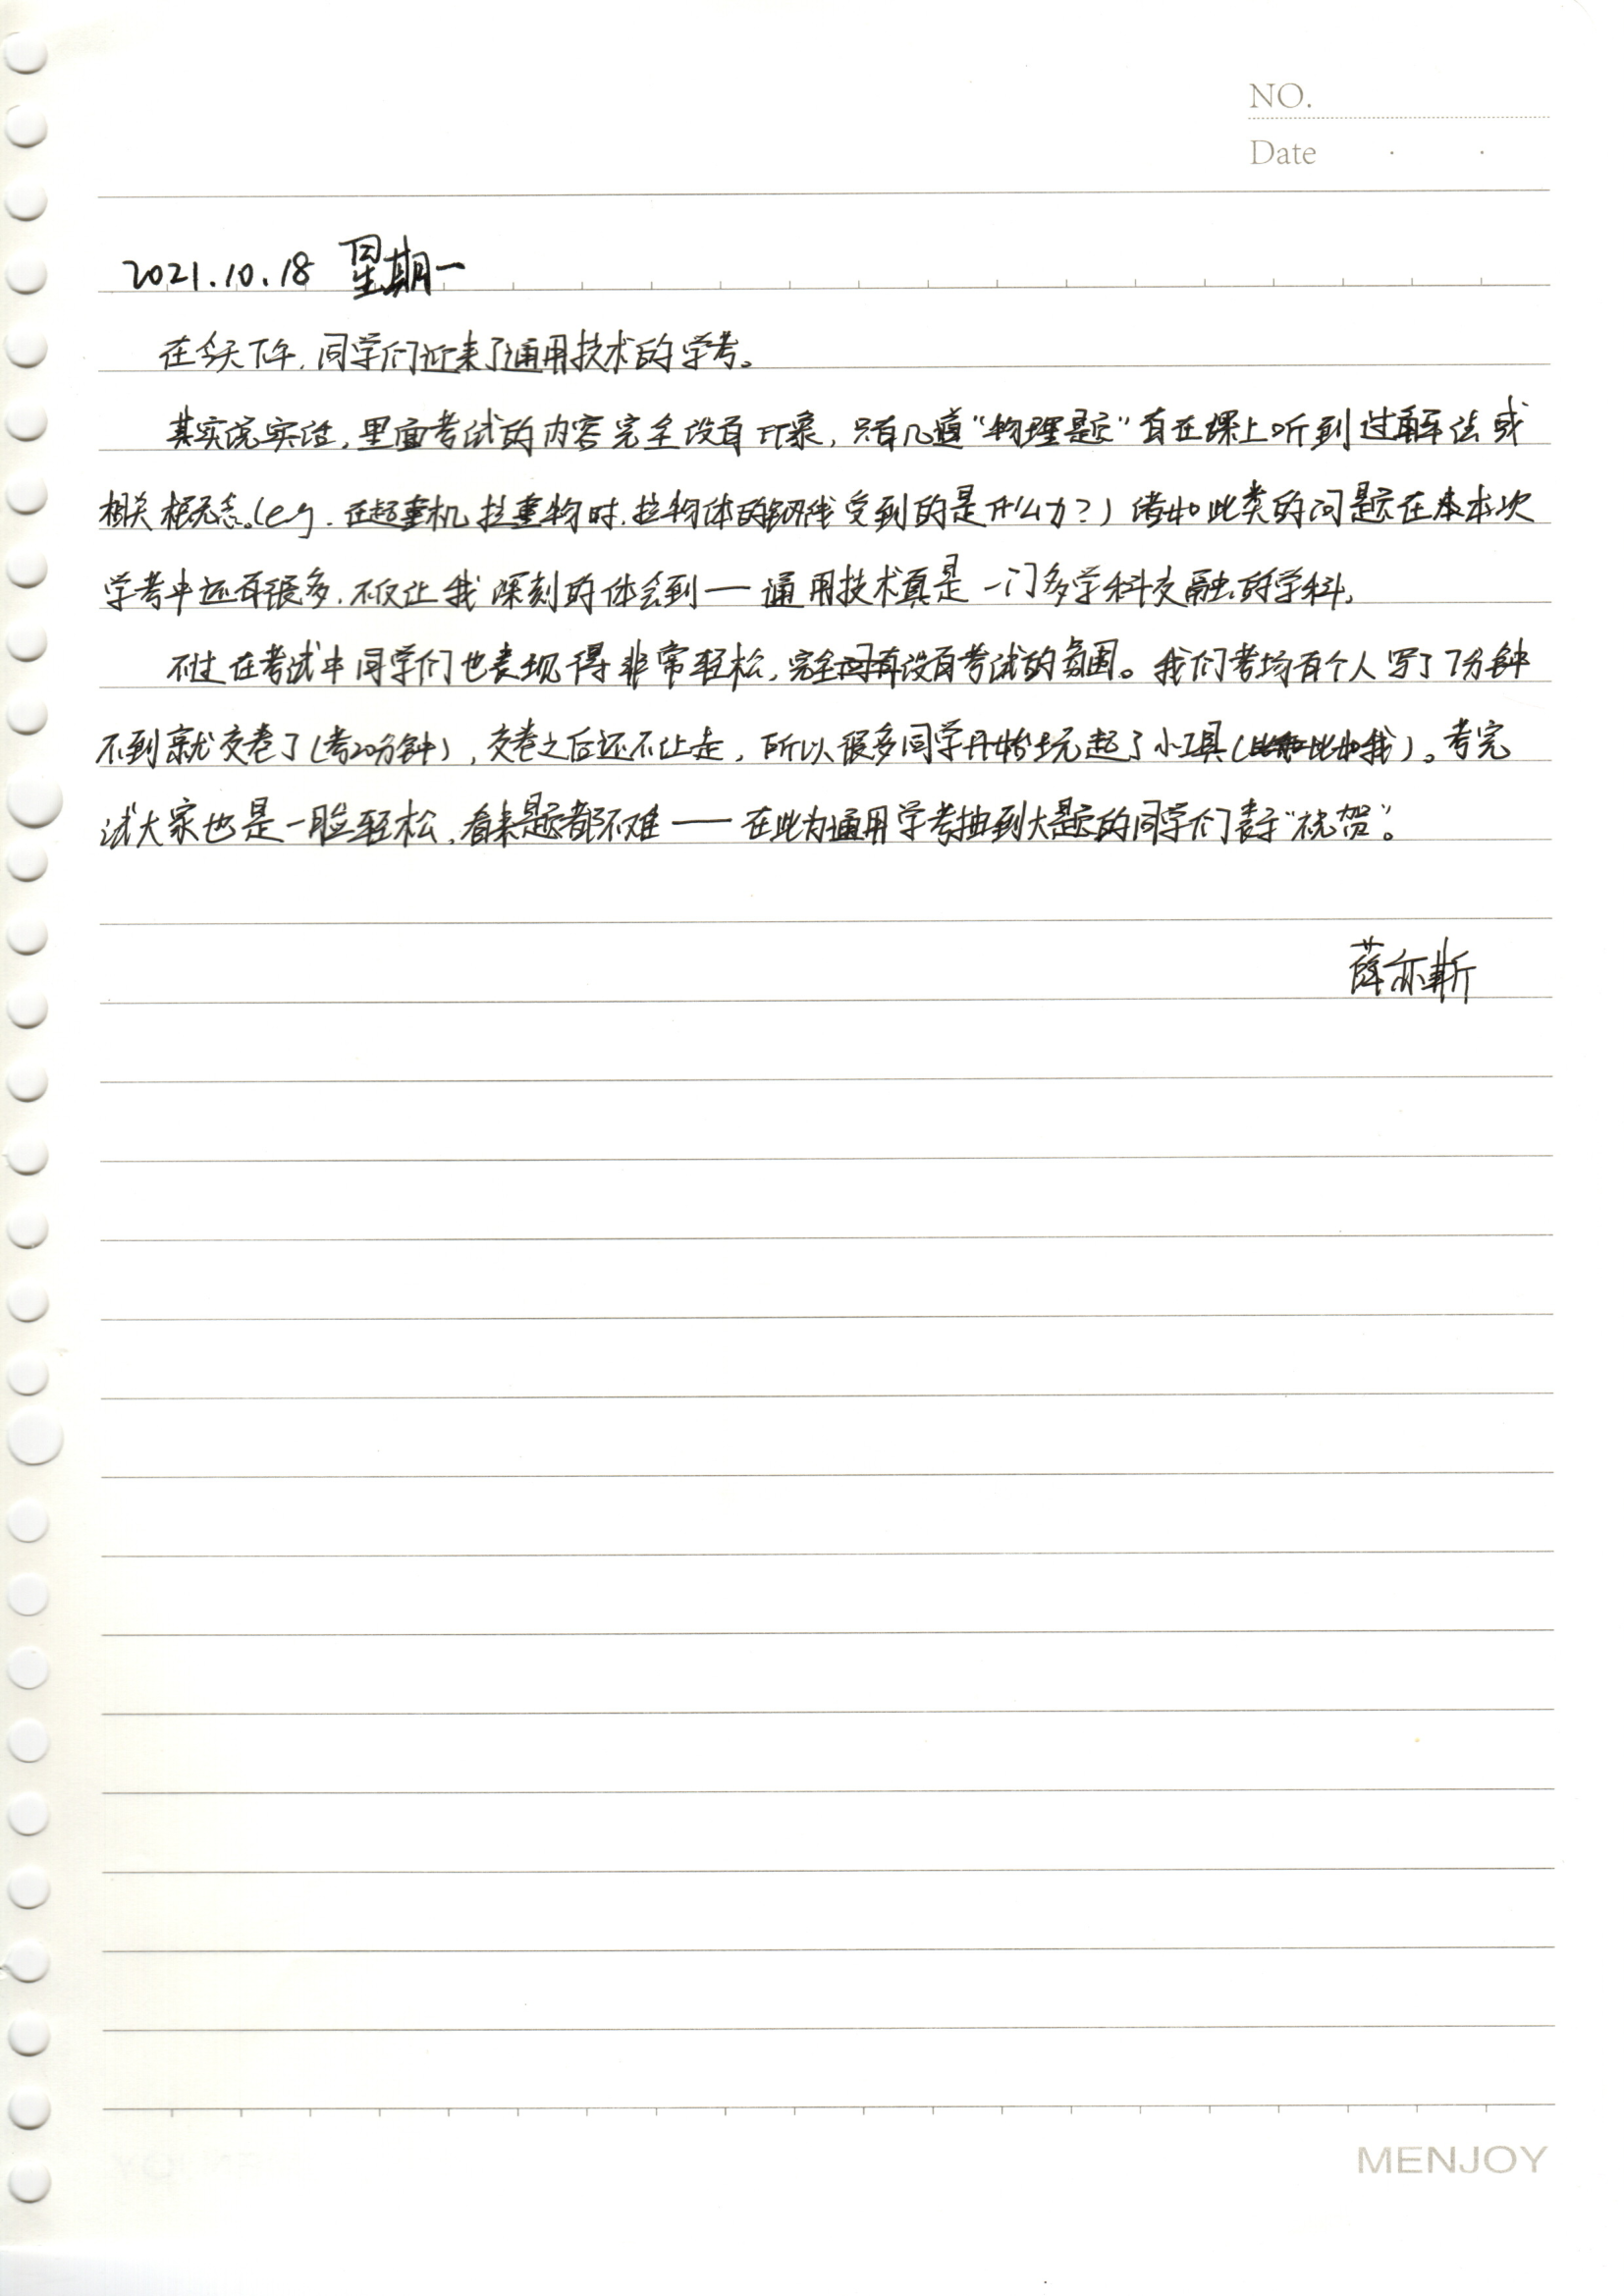 NO.
Date
2021.10.18 星期一
在今天下午,同学们迎来了通用技术的学考。
其实说实话,里面考试的内容完全没有印象,只有几道“物理题”有在课上听到过解法或
相关概念。(eg. 在起重机拉重物时,拉物体的钢线受到的是什么力?)诸如此类的问题在本本次
学考中还有很多,不仅让我深刻的体会到——通用技术真是一门多学科交融的学科。
不过在考试中同学们也表现得非常轻松,完全没有考试的氛围。我们考场有个人写了7分钟
不到就交卷了(考20分钟),交卷之后还不让走,所以很多同学开始玩起了小工具(比如我)。考完
试大家也是一脸轻松,看来题都不难——在此为通用学考抽到大题的同学们表示“祝贺”。
薛亦斯
MENJOY